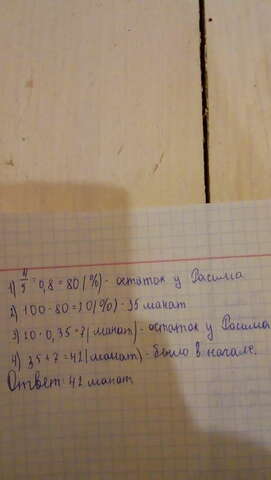 1) 4/5 = 0,8 = 80 (%) - остаток у Расима
2) 100 - 80 = 20 (%) - 35 манат
3) 20 · 0,35 = 7 (манат) - остаток у Расима
4) 35 + 7 = 42 (манат) - было в начале.
Ответ: 42 манат